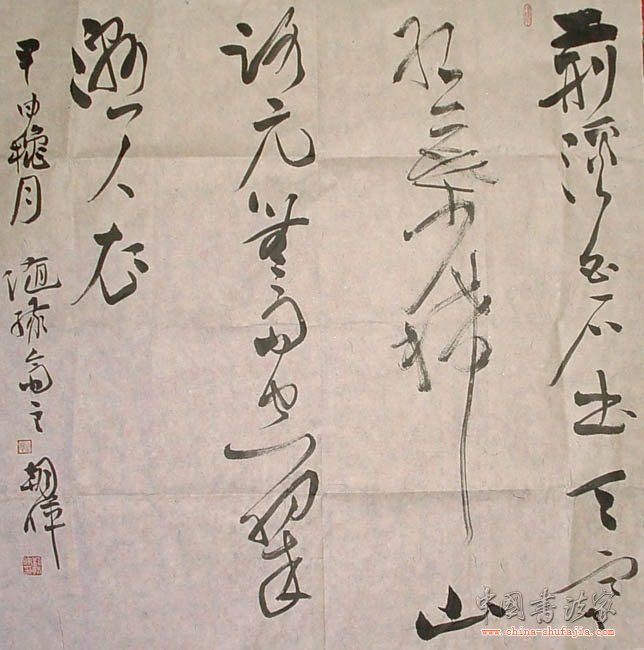 荆溪白石出天寒
红叶稀山
路元无雨空翠
湿人衣
甲申 月 随缘斋主 朝晖
中国书法家
www.china-shufajia.com